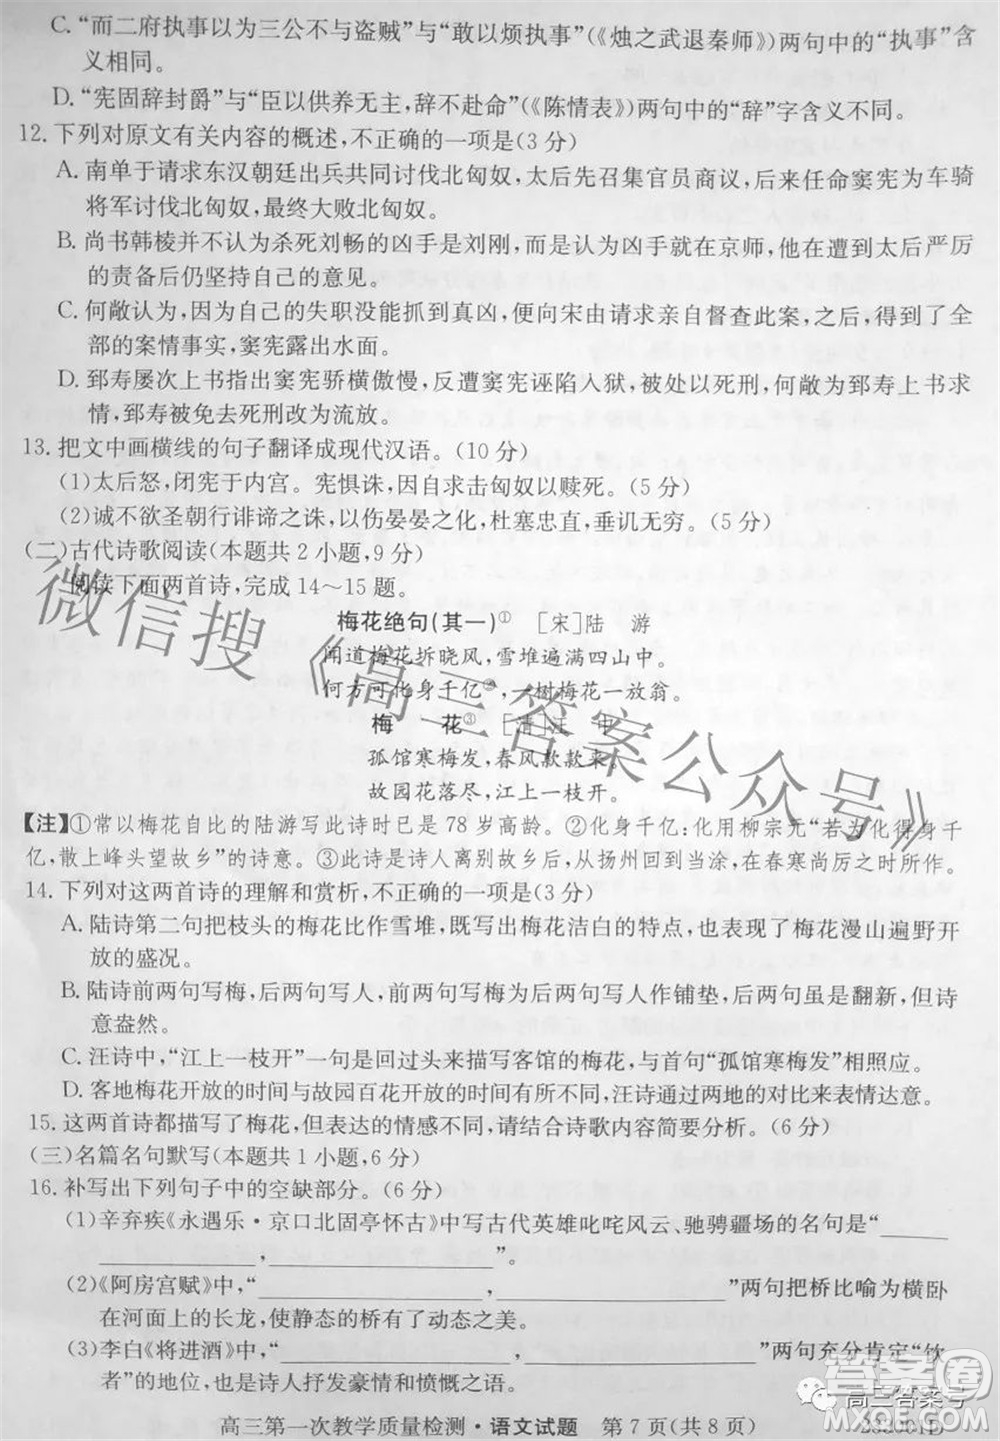 C.“而二府执事以为三公不与盗贼”与“敢以烦执事”(《烛之武退秦师》)两句中的“执事”含
义相同。
D.“宪固辞封爵”与“臣以供养无主,辞不赴命”(《陈情表》)两句中的“辞”字含义不同。
12.下列对原文有关内容的概述,不正确的一项是(3分)
A.南单于请求东汉朝廷出兵共同讨伐北匈奴,太后先召集官员商议,后来任命窦宪为车骑
将军讨伐北匈奴,最终大败北匈奴。
B.尚书韩棱并不认为杀死刘畅的凶手是刘刚,而是认为凶手就在京师,他在遭到太后严厉
的责备后仍坚持自己的意见。
C.何敞认为,因为自己的失职没能抓到真凶,便向宋由请求亲自督查此案,之后,得到了全
部的案情事实,窦宪露出水面。
D.郅寿屡次上书指出窦宪骄横傲慢,反遭窦宪诬陷入狱,被处以死刑,何敞为郅寿上书求
情,郅寿被免去死刑改为流放。
13.把文中画横线的句子翻译成现代汉语。(10分)
(1)太后怒,闭宪于内宫。宪惧诛,因自求击匈奴以赎死。(5分)
(2)诚不欲圣朝行诽谤之诛,以伤晏晏之化,杜塞忠直,垂讥无穷。(5分)
(二)古代诗歌阅读(本题共2小题,9分)
阅读下面两首诗,完成14~15题。
梅花绝句(其一)① [宋]陆 游
闻道梅花坼晓风,雪堆遍满四山中。
何方可化身千亿②,一树梅花一放翁。
梅 花③ [清]汪 中
孤馆寒梅发,春风款款来。
故园花落尽,江上一枝开。
【注】①常以梅花自比的陆游写此诗时已是78岁高龄。②化身千亿:化用柳宗元“若为化得身千
亿,散上峰头望故乡”的诗意。③此诗是诗人离别故园亲人,从扬州回到当涂,在春寒尚厉之时所作。
14.下列对这两首诗的理解和赏析,不正确的一项是(3分)
A.陆诗第二句把枝头的梅花比作雪堆,既写出梅花洁白的特点,也写出了梅花漫山遍野开
放的盛况。
B.陆诗前两句写梅,后两句写人,前两句写梅为后两句写人作铺垫,后两句虽是翻新,但诗
意盎然。
C.汪诗中,“江上一枝开”一句是回过头来描写客馆的梅花,与首句“孤馆寒梅发”相照应。
D.客地梅花开放的时间与故园百花开放的时间不同,汪诗通过两地的对比来表情达意。
15.这两首诗都描写了梅花,但表达的情感不同,请结合诗歌内容分析。(6分)
(三)名篇名句默写(本题共1小题,6分)
16.补写出下列句子中的空缺部分。(6分)
(1)辛弃疾《永遇乐·京口北固亭怀古》中写古代英雄叱咤风云、驰骋疆场的名句是“______
____________,____________”。
(2)《阿房宫赋》中,“____________,____________”两句把桥比喻为横卧
在河面上的长龙,使静态的桥有了动态之美。
(3)李白《将进酒》中,“____________,____________”两句充分肯定“饮
者”的地位,也是诗人抒发豪情和愤慨之语。
高三第一次教学质量检测·语文试题 第7页(共8页)
微信搜《高三答案公众号》
高三答案号
答案圈